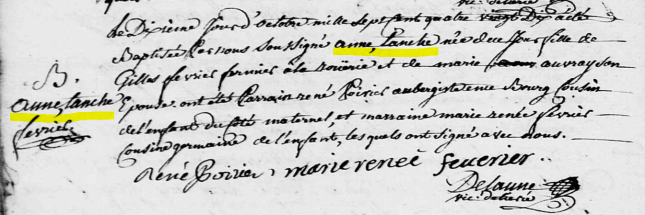 Le Dixieme Jour d'octobre mille sept cent quatre vingt Dix a été
Baptisée Par nous soussigné anne, tanche née de ce Jour fille de
B. Gilles fevrier fermier à la et de marie auvray son
anne, tanche Epouse ont été Parrain rené Poirier aubergiste en ce Bourg Cousin
fevrier de l'enfant du côté maternel et marraine marie renée fevrier
Cousine germaine de l'enfant, lesquels ont signé avec nous.
René Poirier, marie reneé feuerier
Delaune
vic.